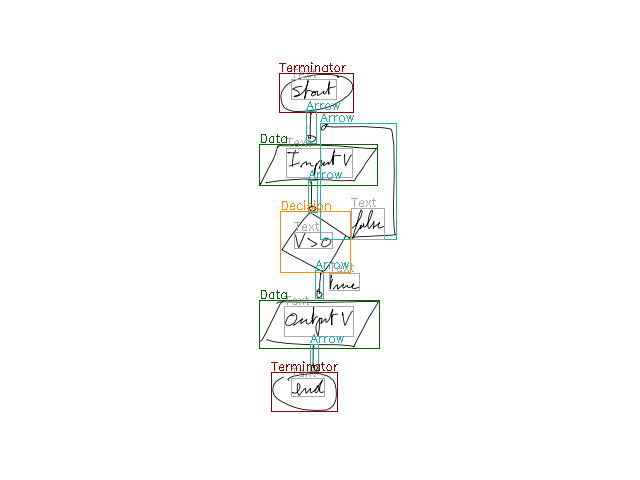 Terminator
Text
Start
Arrow
Arrow
Data
Text
Input V
Arrow
Decision
Text
false
Text
V>0
Arrow
Text
true
Data
Text
Output V
Arrow
Terminator
Text
end